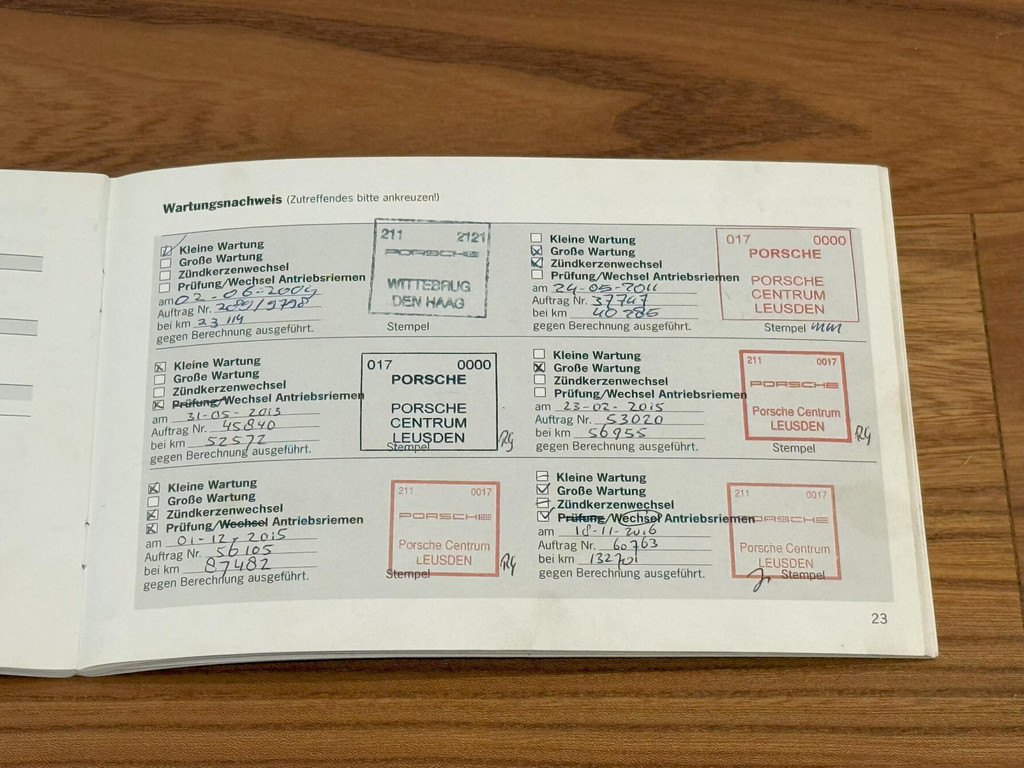 Wartungsnachweis (Zutreffendes bitte ankreuzen!)
Kleine Wartung
Große Wartung
Zündkerzenwechsel
Prüfung/Wechsel Antriebsriemen
am 02-06-2009
Auftrag Nr. 289/9798
bei km 23 114
gegen Berechnung ausgeführt.
211 2121
PORSCHE
WITTEBRUG
DEN HAAG
Stempel
Kleine Wartung
Große Wartung
Zündkerzenwechsel
Prüfung/Wechsel Antriebsriemen
am 24-05-2011
Auftrag Nr. 37747
bei km 40 286
gegen Berechnung ausgeführt.
017 0000
PORSCHE
PORSCHE
CENTRUM
LEUSDEN
Stempel
Kleine Wartung
Große Wartung
Zündkerzenwechsel
Prüfung/Wechsel Antriebsriemen
am 31-05-2013
Auftrag Nr. 45840
bei km 52572
gegen Berechnung ausgeführt.
017 0000
PORSCHE
PORSCHE
CENTRUM
LEUSDEN
Stempel RG
Kleine Wartung
Große Wartung
Zündkerzenwechsel
Prüfung/Wechsel Antriebsriemen
am 23-02-2015
Auftrag Nr. 53020
bei km 56955
gegen Berechnung ausgeführt.
211 0017
PORSCHE
Porsche Centrum
LEUSDEN
Stempel RG
Kleine Wartung
Große Wartung
Zündkerzenwechsel
Prüfung/Wechsel Antriebsriemen
am 01-12-2015
Auftrag Nr. 56105
bei km 87482
gegen Berechnung ausgeführt.
211 0017
PORSCHE
Porsche Centrum
LEUSDEN
Stempel RG
Kleine Wartung
Große Wartung
Zündkerzenwechsel
Prüfung/Wechsel Antriebsriemen
am 18-11-2016
Auftrag Nr. 60763
bei km 132701
gegen Berechnung ausgeführt.
211 0017
PORSCHE
Porsche Centrum
LEUSDEN
Stempel
23